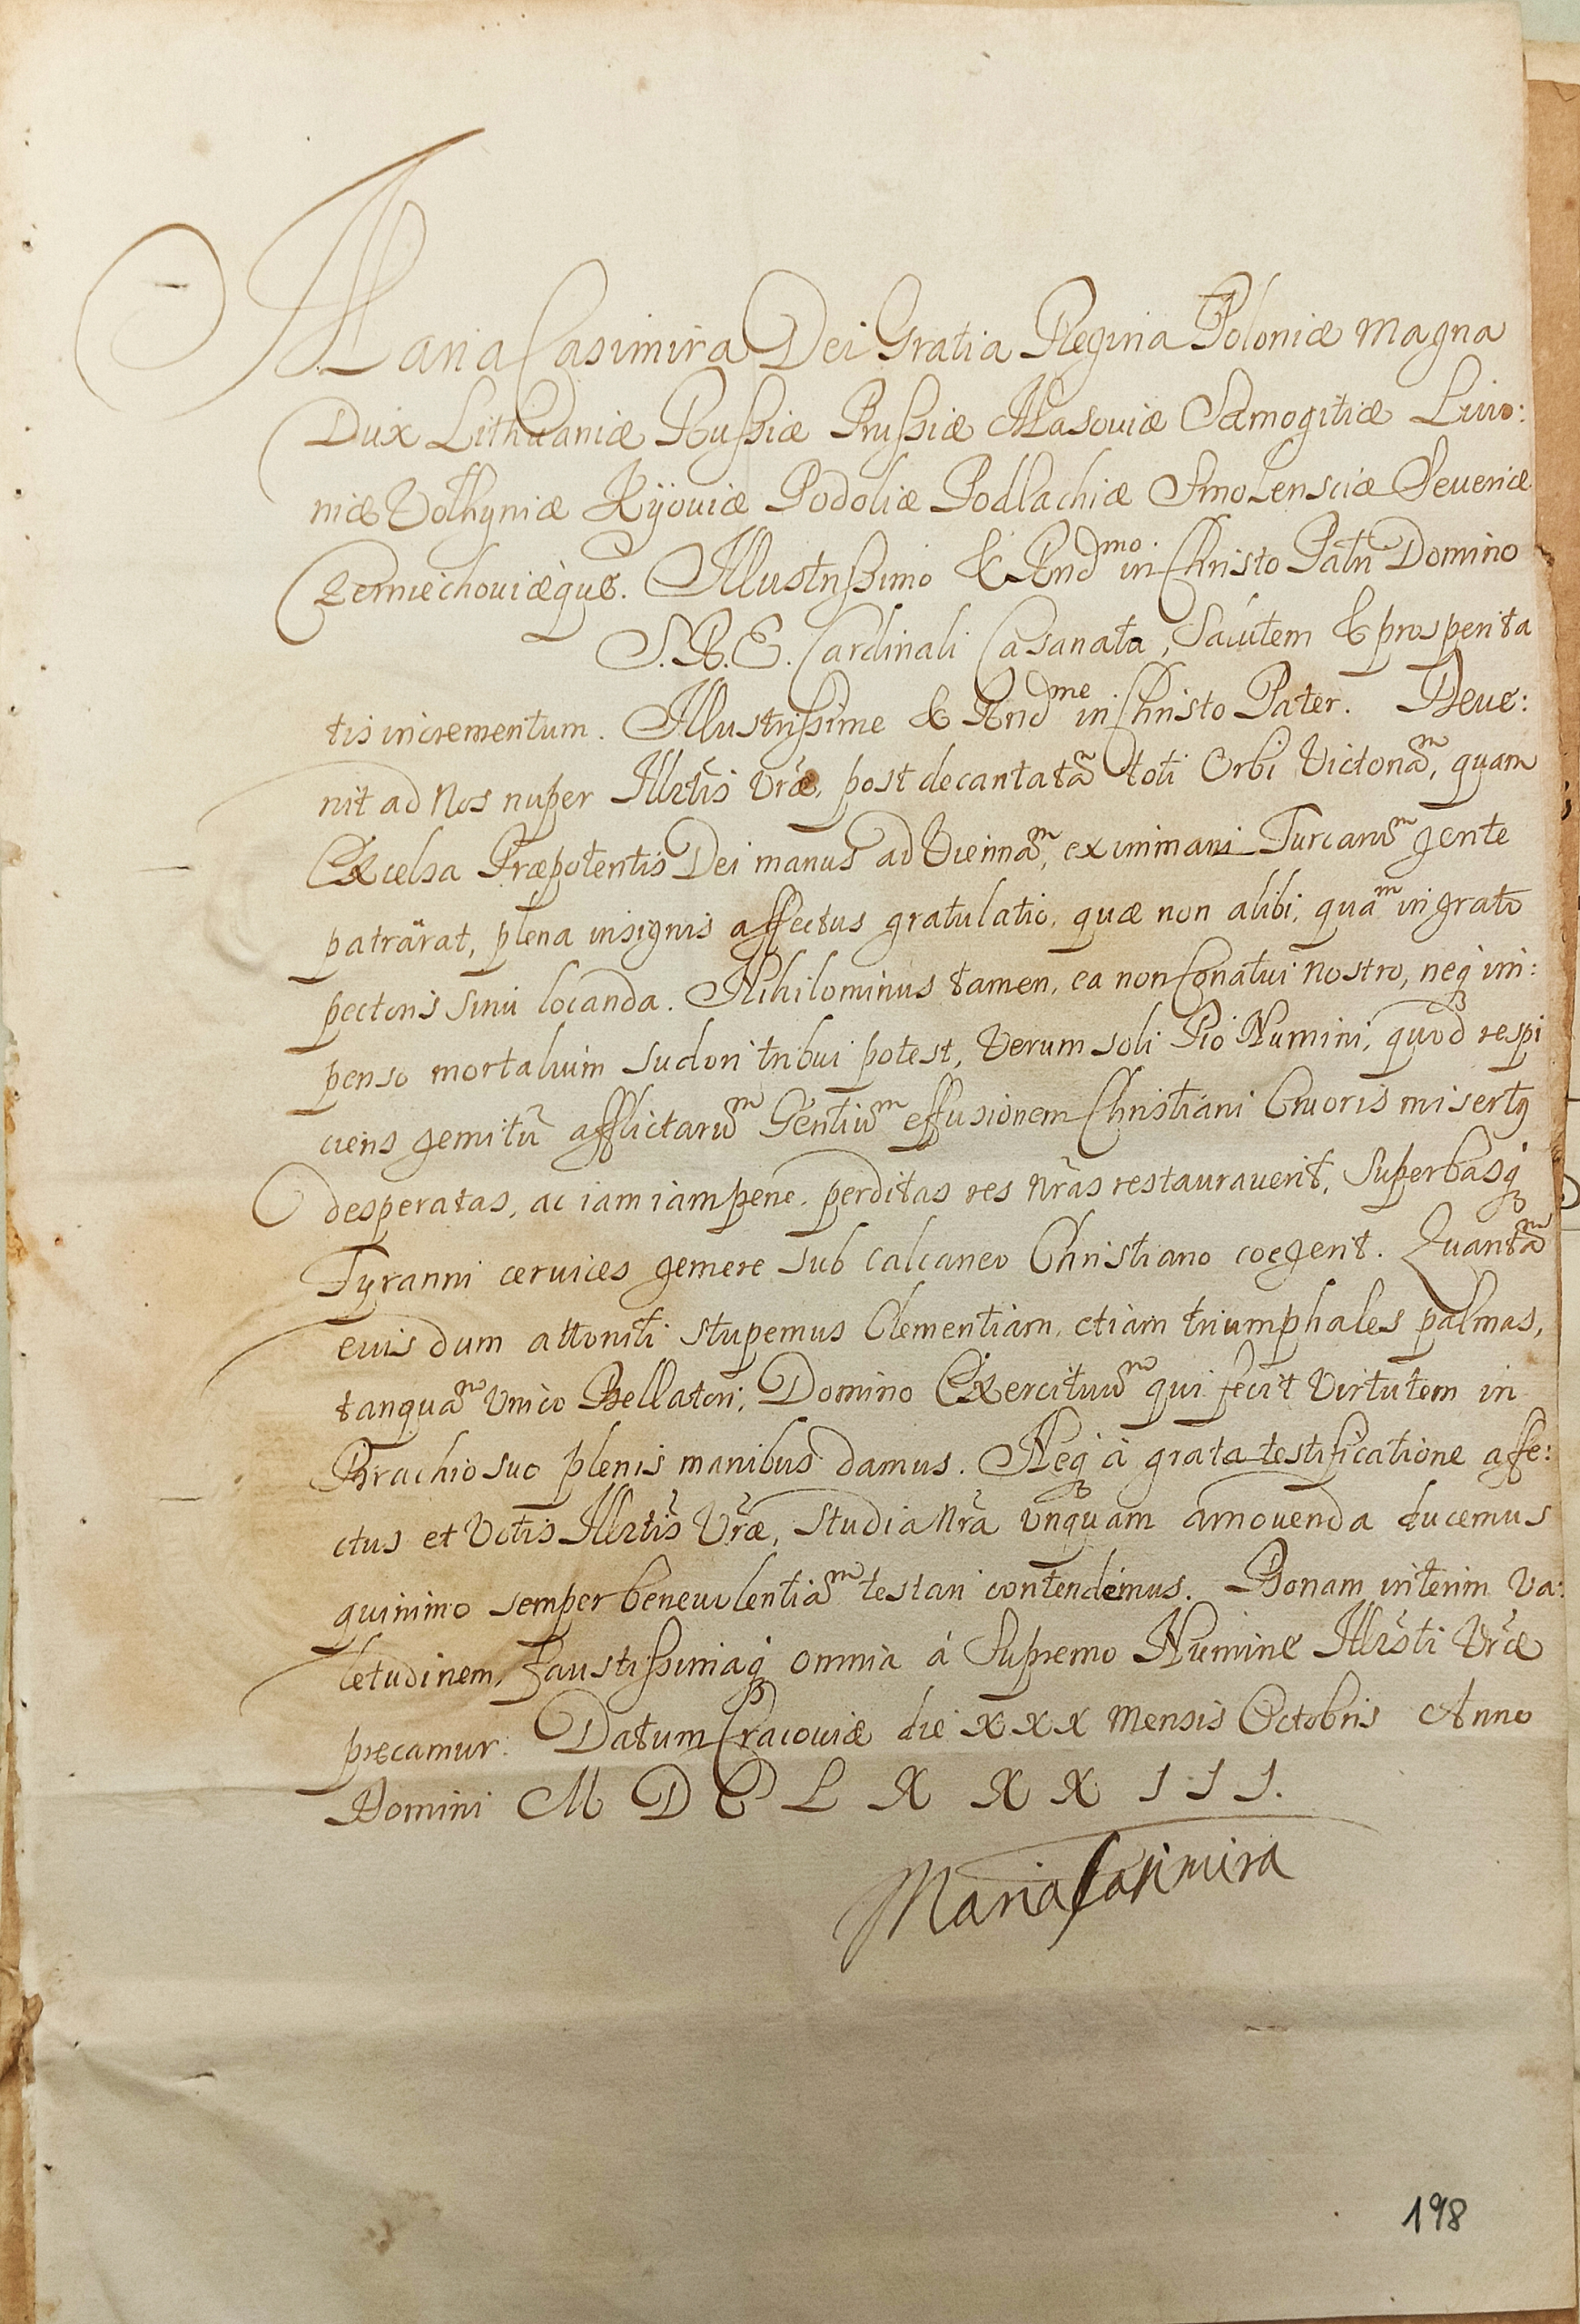 Maria Casimira Dei Gratia Regina Poloniæ Magna
Dux Lithuaniæ Russiæ Prussiæ Masouiæ Samogitiæ Liuo:
niæ Volhyniæ Kijouiæ Podoliæ Podlachiæ Smolensciæ Seueriæ
Czerniechouiæque. Illustrissimo & Rnd^mo. in Christo Patri Domino
S. R. E. Cardinali Casanata, Salutem & prosperita
tis incrementum. Illustrissime & Rnd^me in Christo Pater. Deue:
nit ad Nos nuper Illrtis Vræ, post decantatã toti Orbi Victoria^m, quam
Excelsa Præpotentis Dei manus ad Vienna^m, ex immani Turcaru^m gente
patrârat, plena insignis affectus gratulatio, quæ non alibi, qua^m in grato
pectoris sinu locanda. Nihilominus tamen, ea non Conatui nostro, neq im:
penso mortalium sudori tribui potest, Verum soli Pio Numini, quod respi
ciens gemitũ afflictaru^m Gentiu^m effusionem Christiani Cruoris misertq
desperatas, ac iam iam pene perditas res nr̃as restaurauerit, Superbasq
Tyranni ceruices gemere sub calcaneo Christiano coegerit. Quanta^m
eius dum attoniti stupemus Clementiam, etiam triumphales palmas,
tanqua^m Vnico Bellatori, Domino Exercituu^m qui fecit Virtutem in
Brachio suo plenis manibus damus. Neq à grata testificatione affe:
ctus et Votis Illrtis Vræ, studia nrã vnquam amouenda ducemus
quinimo semper beneuolentia^m testari contendemus. Bonam interim Va:
letudinem, faustissimaq omnia á Supremo Numine Illrsti Vræ
precamur. Datum Cracouiæ die XXX Mensis Octobris Anno
Domini M D C L X X X I I I.
Maria Casimira
198